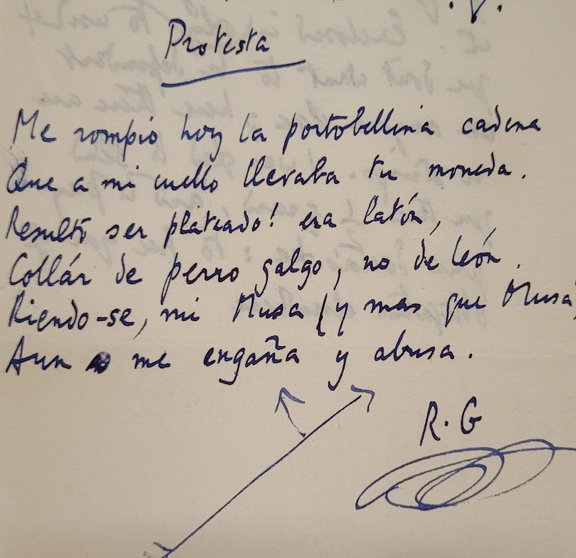 Protesta
Me rompió hoy la portobellina cadena
Que a mi cuello llevaba tu moneda.
Resultó ser plateado! era latón,
Collár de perro galgo, no de león.
Riendo-se, mi Musa (y mas que Musa)
Aun me engaña y abusa.
R.G